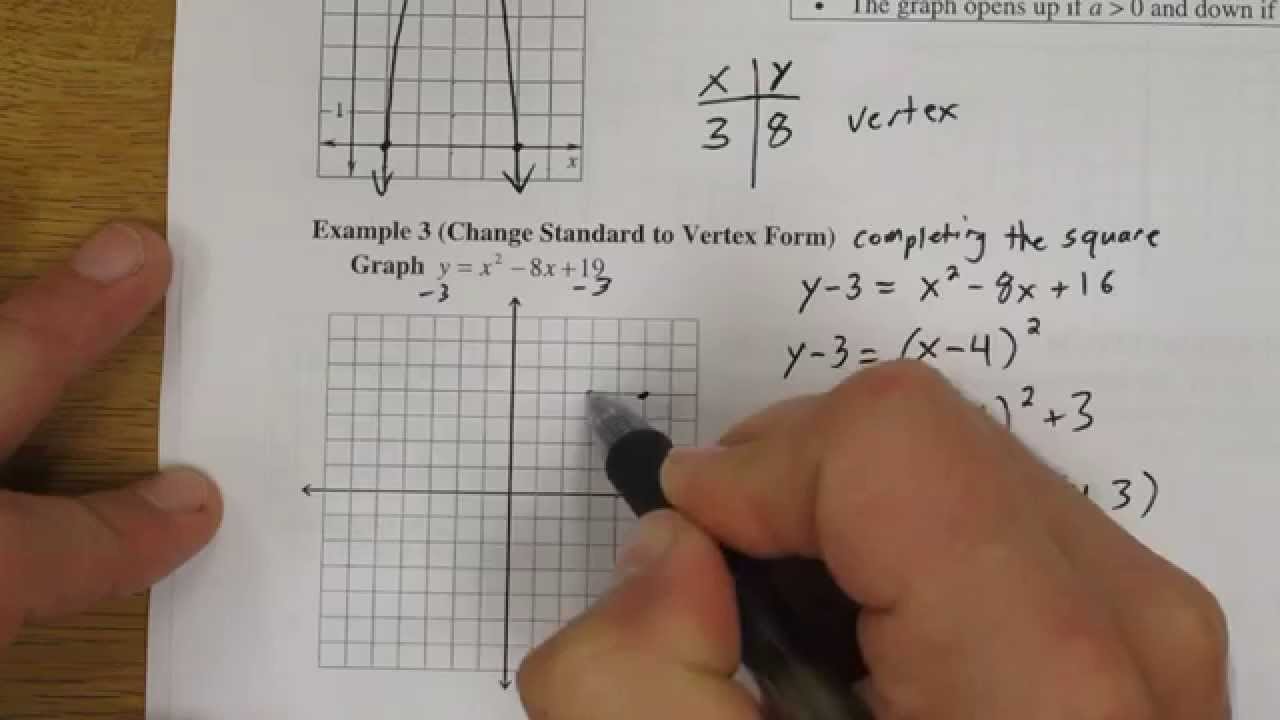 • The graph opens up if a > 0 and down if
-1
x
X Y
3 8 vertex
Example 3 (Change Standard to Vertex Form) completing the square
Graph y = x² − 8x + 19
-3 -3
y-3 = x² - 8x + 16
y-3 = (x-4)²
)² + 3
3)